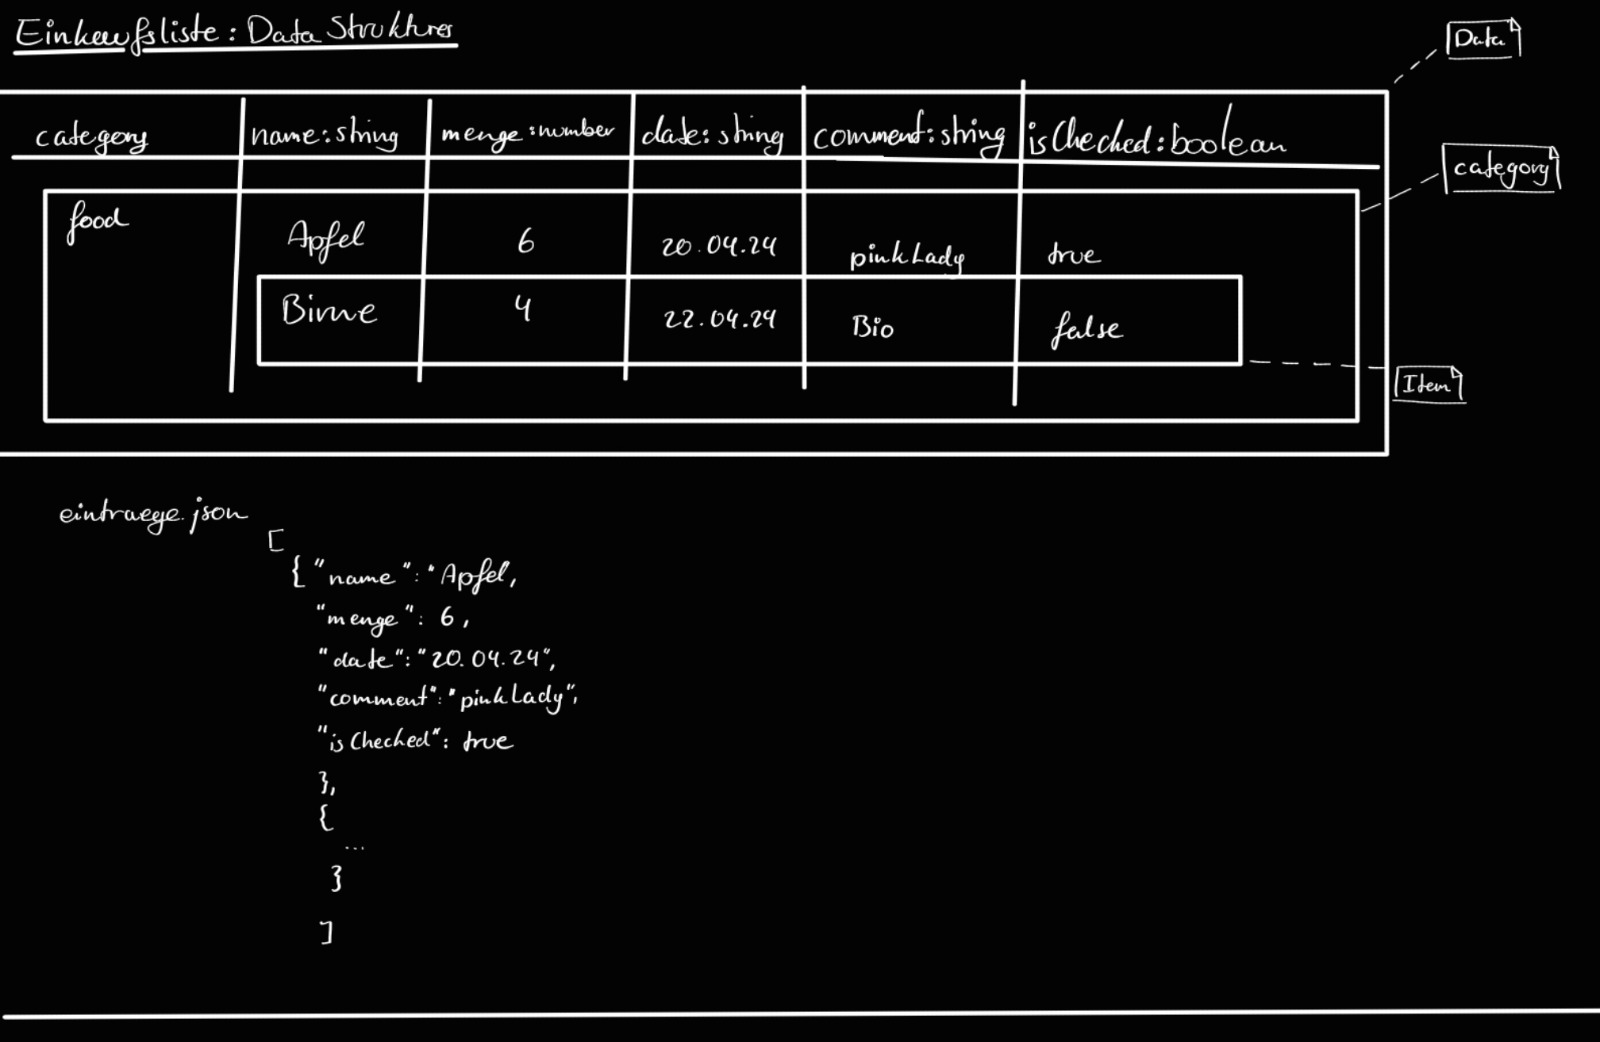 Einkaufsliste: Data Struktures
Data
category name:string menge:number date:string comment:string isChecked:boolean
category
food Apfel 6 20.04.24 pinkLady true
Birne 4 22.04.24 Bio false
Item
eintraege.json
[
{ "name": "Apfel,
"menge": 6,
"date": "20.04.24",
"comment": "pinkLady",
"isChecked": true
},
{
...
}
]